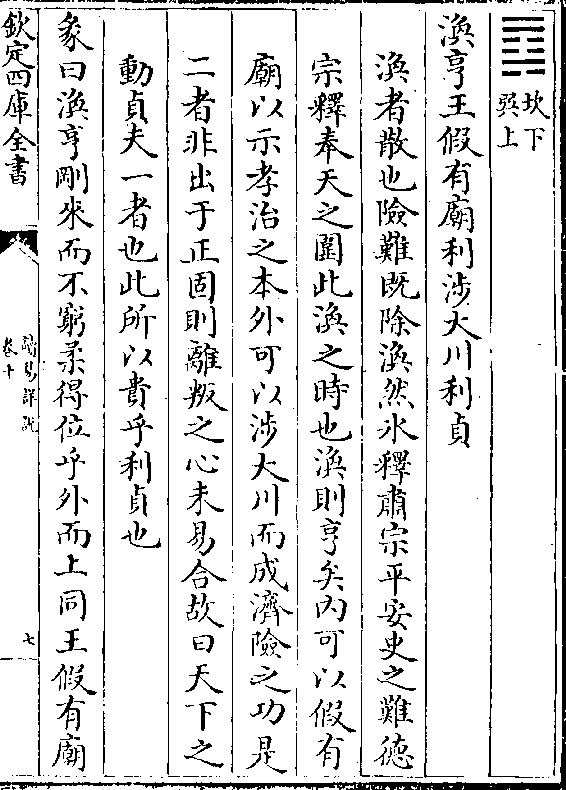 坎下
巽上
渙亨王假有廟利涉大川利貞
渙者散也險難既除渙然氷釋肅宗平安史之難德
宗釋奉天之圍此渙之時也渙則亨矣内可以假有
廟以示孝治之本外可以涉大川而成濟險之功是
二者非出于正固則離叛之心未易合故曰天下之
動貞夫一者也此所以貴乎利貞也
彖曰渙亨剛來而不窮柔得位乎外而上同王假有廟
欽定四庫全書
卷十
易詳説
七